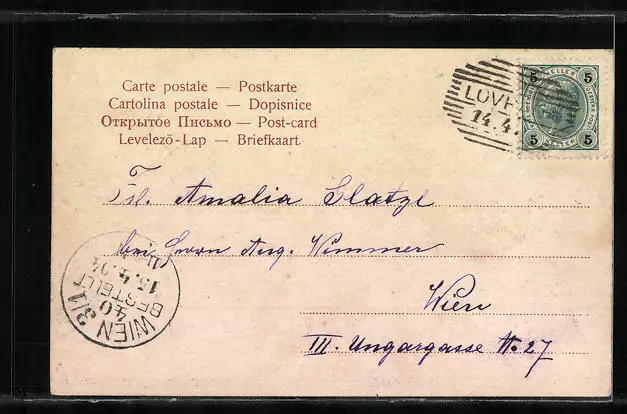 Carte postale — Postkarte
Cartolina postale — Dopisnice
Открытое Письмо — Post-card
Levelező-Lap — Briefkaart.
LOVR
14.4.
5 HELLER 5
5 5
Frl. Amalia Glatzl
bei Herrn Aug. Wimmer
Wien
III. Ungargasse No 27
WIEN 3/1
40
BESTELLT
15.4.04